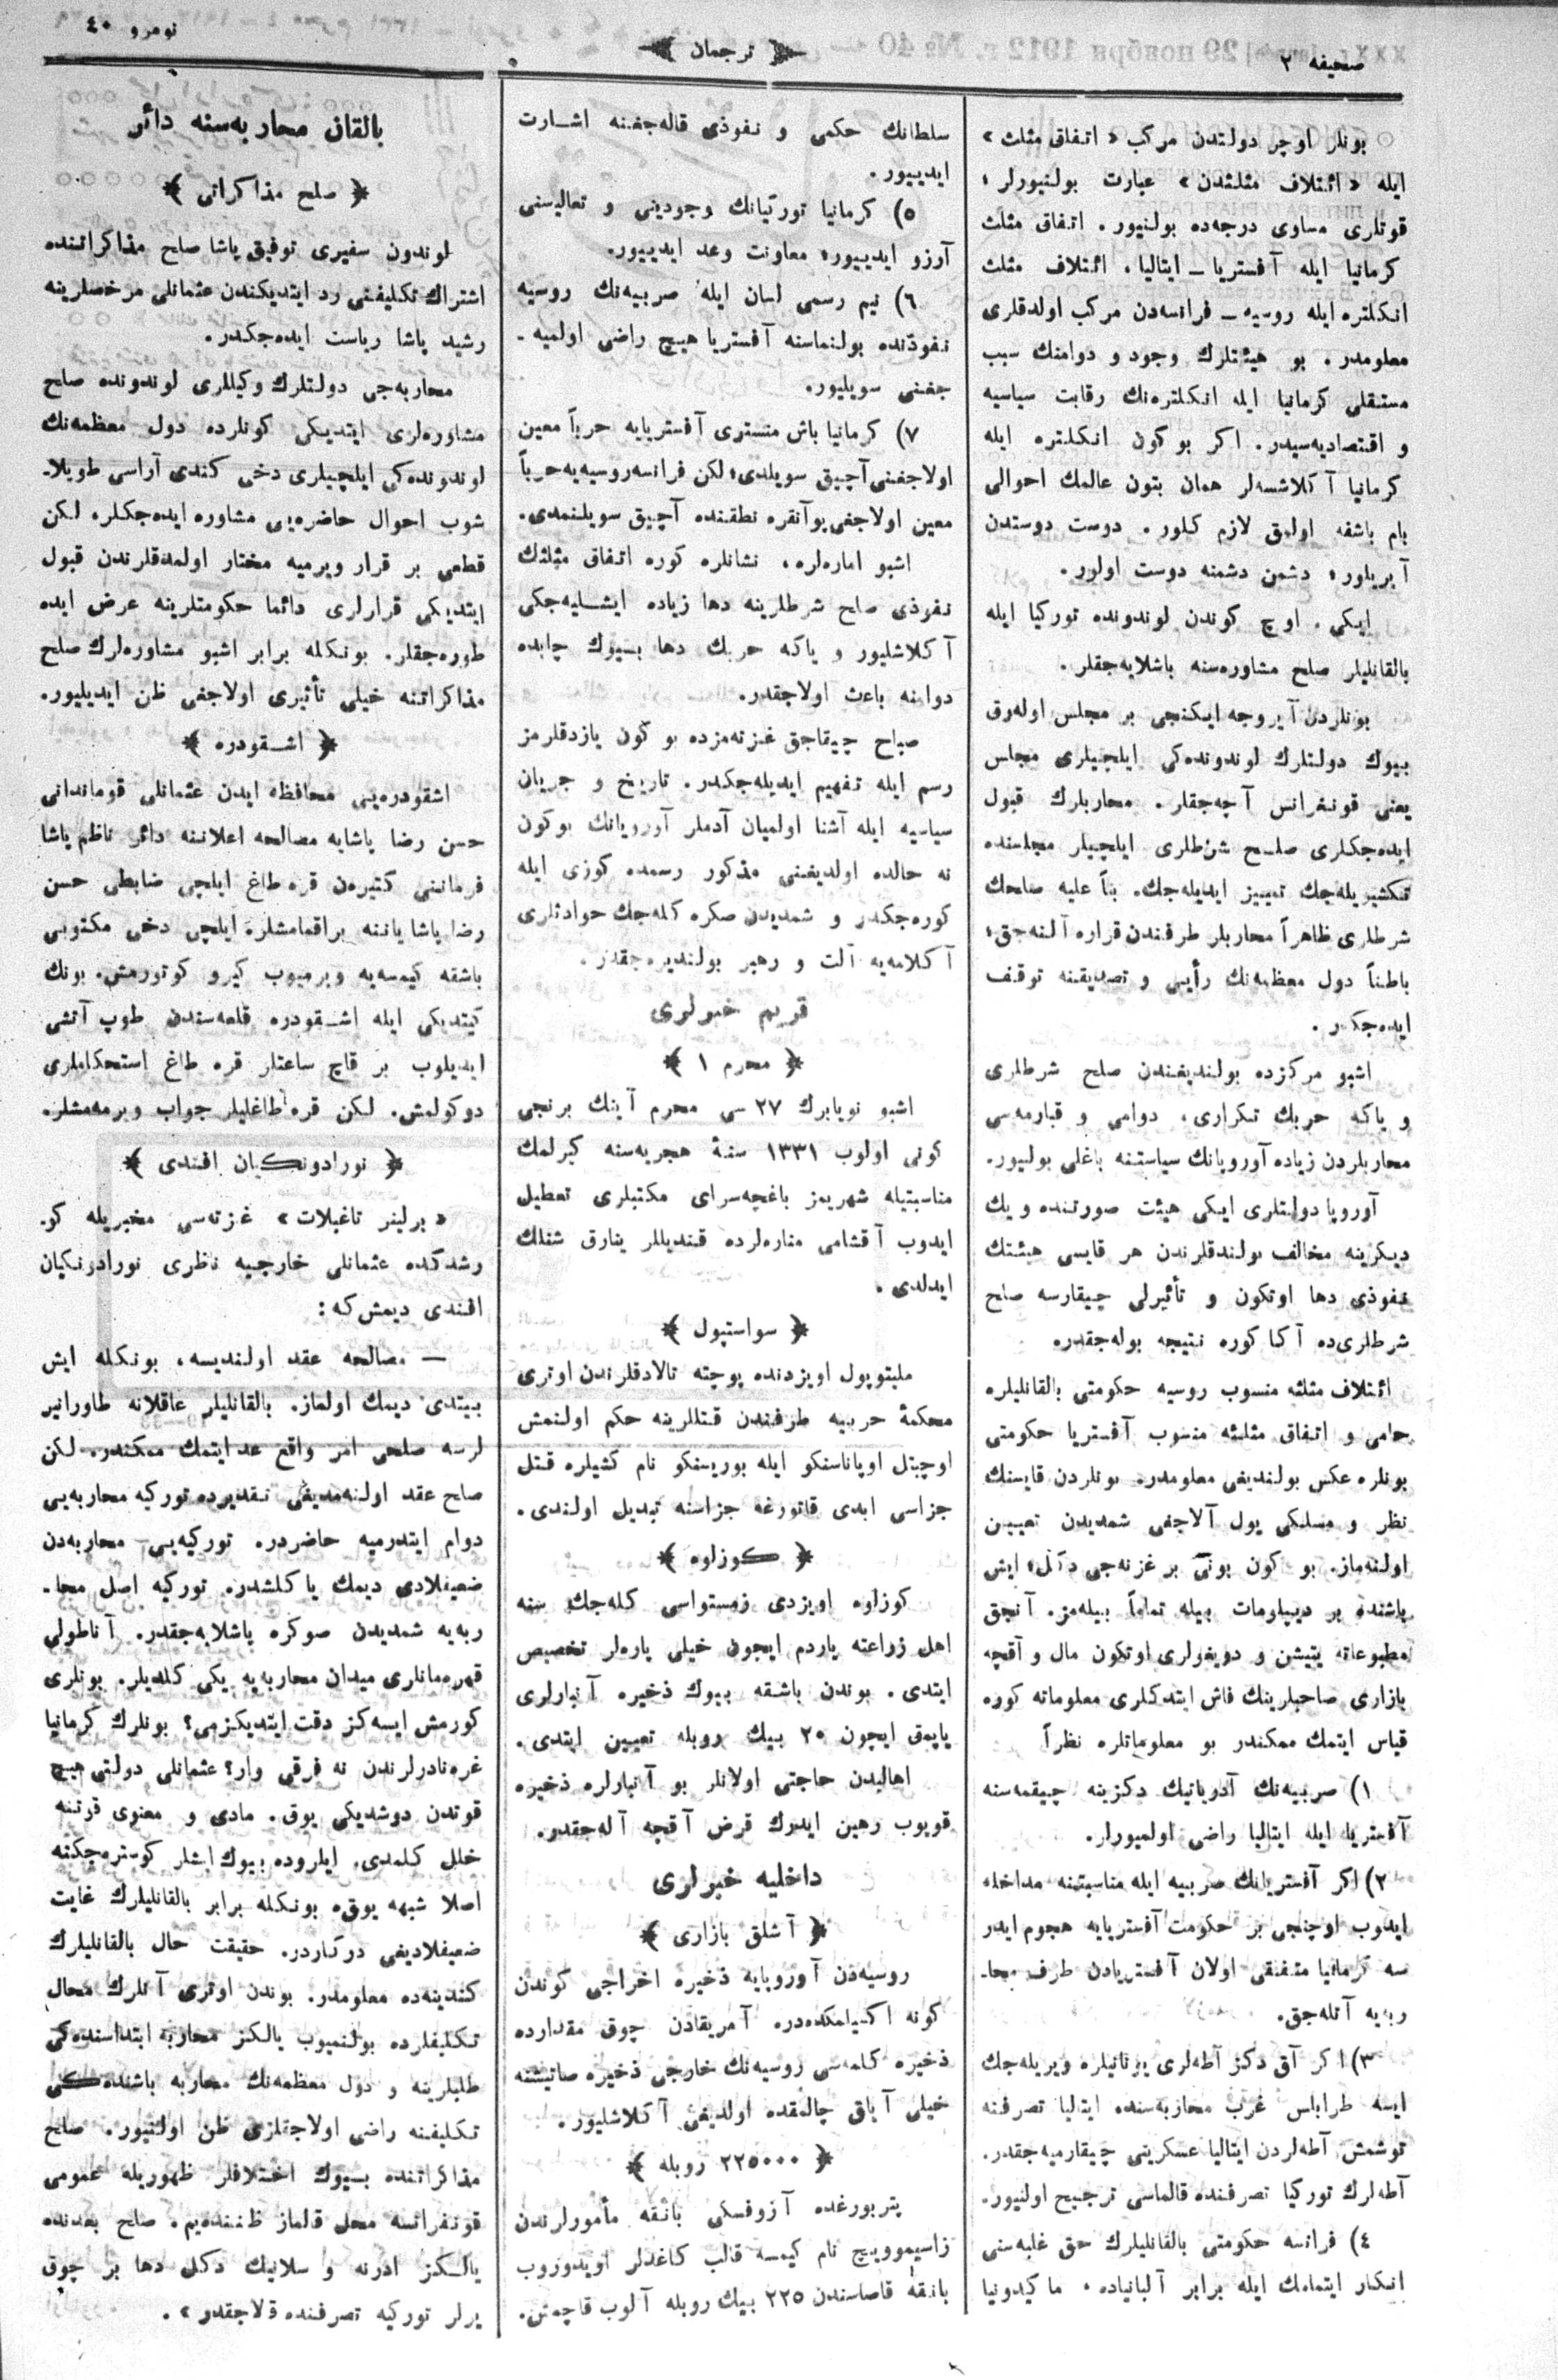 صحیفه ٢
ترجمان
نومرو ٤٠
بونلر اوچر دولتدن مرکب «اتفاق مثلث»
ایله «ائتلاف مثلثدن» عبارت بولنیورلر؛
قوتلری مساوی درجه‌ده بولنیور. اتفاق مثلث
کرمانیا ایله آفستریا ــ ایتالیا، ائتلاف مثلث
انکلتره ایله روسیه ــ فرانسه‌دن مرکب اولدقلری
معلومدر. بو هیئتلرك وجود و دوامنك سبب
مستقلی کرمانیا ایله انکلتره‌نك رقابت سیاسیه
و اقتصادیه‌سیدر. اکر بو کون انکلتره ایله
کرمانیا آکلاشسه‌لر همان بتون عالمك احوالی
بام باشقه اولمق لازم کلور. دوست دوستدن
آیریلور؛ دشمن دشمنه دوست اولور.
ایکی، اوچ کوندن لوندونده تورکیا ایله
بالقانلیلر صلح مشاوره‌سنه باشلایه‌جقلر.
بونلردن آیروجه ایکنجی بر مجلس اوله‌رق
بیوك دولتلرك لوندونده‌کی ایلچیلری مجلس
یعنی قونفرانس آچه‌جقلر. محاربلرك قبول
ایده‌جکلری صلح شرطلری ایلچیلر مجلسنده
تنکشیریله‌جك تمییز ایدیله‌جك. بناً علیه صلحك
شرطلری ظاهراً محاربلر طرفندن قراره آلنه‌جق؛
باطناً دول معظمه‌نك رأیی و تصدیقنه توقف
ایده‌جکدر.
اشبو مرکزده بولندیغندن صلح شرطلری
و یاکه حربك تکراری، دوامی و قبارمه‌سی
محاربلردن زیاده آوروپانك سیاستنه باغلی بولنیور.
آوروپا دولتلری ایکی هیئت صورتنده و یك
دیکرینه مخالف بولندقلرندن هر قایسی هیئتك
نفوذی دها اوتکون و تأثیرلی چیقارسه صلح
شرطلری‌ده آکا کوره نتیجه بوله‌جقدر.
ائتلاف مثلثه منسوب روسیه حکومتی بالقانلیلره
حامی و اتفاق مثلثه منسوب آفستریا حکومتی
بونلره عکس بولندیغی معلومدر. بونلردن قایسنك
نظر و مسلکی یول آلاجغی شمدیدن تعیین
اولنه‌ماز. بو کون بونی بر غزته‌جی دکل؛ ایش
باشنده بر دیپلومات بیله تماماً بیله‌مز. آنجق
مطبوعاته یتیشن و دویغولری اوتکون مال و آقچه
بازاری صاحبلرینك فاش ایتدکلری معلوماته کوره
قیاس ایتمك ممکندر بو معلوماتلره نظراً
١) صربیه‌نك آدریاتیك دکزینه چیقمه‌سنه
آفستریا ایله ایتالیا راضی اولمیورلر.
٢) اکر آفستریانك صربیه ایله مناسبتنه مداخله
ایدوب اوچنجی بر حکومت آفستریایه هجوم ایدر
سه کرمانیا متفقی اولان آفستریادن طرف محا-
ربه‌یه آتله‌جق.
٣) اکر آق دکز آطه‌لری یونانیلره ویریله‌جك
ایسه طرابلس غرب محاربه‌سنده ایتالیا تصرفنه
توشمش آطه‌لردن ایتالیا عسکرینی چیقارمیه‌جقدر.
آطه‌لرك تورکیا تصرفنده قالماسی ترجیح اولنیور.
٤) فرانسه حکومتی بالقانلیلرك حق غلبه‌سنی
انکار ایتمامك ایله برابر آلبانیاده، ماکیدونیا
سلطانك حکمی و نفوذی قاله‌جغنه اشارت
ایدییور.
٥) کرمانیا تورکیانك وجودینی و تعالیسنی
آرزو ایدییور؛ معاونت وعد ایدییور.
٦) نیم رسمی لسان ایله صربیه‌نك روسیه
نفوذنده بولنماسنه آفستریا هیچ راضی اولمیه-
جغنی سویلیور.
٧) کرمانیا باش منستری آفستریایه حرباً معین
اولاجغنی آچیق سویلدی؛ لکن فرانسه روسیه‌یه حرباً
معین اولاجغی پوآنقره نطقنده آچیق سویلنمدی.
اشبو اماره‌لره، نشانلره کوره اتفاق مثلثك
نفوذی صلح شرطلرینه دها زیاده ایشلیه‌جکی
آکلاشلیور و یاکه حربك دها بیوك چابده
دوامنه باعث اولاجقدر.
صباح چیقاجق غزته‌مزده بو کون یازدقلرمز
رسم ایله تفهیم ایدیله‌جکدر. تاریخ و جریان
سیاسیه ایله آشنا اولمیان آدملر آوروپانك بوکون
نه حالده اولدیغنی مذکور رسمده کوزی ایله
کوره‌جکدر و شمدیدن صکره کله‌جك حوادثلری
آکلامه‌یه آلت و رهبر بولندیره‌جقدر.
قریم خبرلری
﴿ محرم ١ ﴾
اشبو نویابرك ٢٧ سی محرم آینك برنجی
کونی اولوب ١٣٣١ سنۀ هجریه‌سنه کیرلمك
مناسبتیله شهریمز باغچه‌سرای مکتبلری تعطیل
ایدوب آقشامی مناره‌لرده قندیللر ینارق شنلك
ایدلدی.
﴿ سواستپول ﴾
ملیتوپول اویزدنده پوچته تالادقلرندن اوتری
محکمۀ حربیه طرفندن قتللرینه حکم اولنمش
اوچیتل اوپاناسنکو ایله بوریسنکو نام کشیلره قتل
جزاسی ابدی قاتورغه جزاسنه تبدیل اولندی.
﴿ کوزلوه ﴾
کوزلوه اویزدی زمستواسی کله‌جك سنه
اهل زراعته یاردم ایچون خیلی پاره‌لر تخصیص
ایتدی. بوندن باشقه بیوك ذخیره آنبارلری
یاپمق ایچون ٢٥ بیك روبله تعیین ایتدی.
اهالیدن حاجتی اولانلر بو آنبارلره ذخیره
قویوب رهین ایدرك قرض آقچه آله‌جقدر.
داخلیه خبرلری
﴿ آشلق بازاری ﴾
روسیه‌دن آوروپایه ذخیره اخراجی کوندن
کونه اکسیلمکده‌در. آمریقادن چوق مقدارده
ذخیره کلمه‌سی روسیه‌نك خارجی ذخیره صاتیشنه
خیلی آیاق چالمقده اولدیغی آکلاشلیور.
﴿ ٢٢٥٠٠٠ روبله ﴾
پتربورغده آزوفسکی بانقه مأمورلرندن
زاسیموویچ نام کیمسه قالب کاغدلر اویدوروب
بانقه قاصاسندن ٢٢٥ بیك روبله آلوب قاچمش.
بالقان محاربه‌سنه دائر
﴿ صلح مذاکراتی ﴾
لوندون سفیری توفیق پاشا صلح مذاکراتنده
اشتراك تکلیفنی رد ایتدیکندن عثمانلی مرخصلرینه
رشید پاشا ریاست ایده‌جکدر.
محاربه‌جی دولتلرك وکیللری لوندونده صلح
مشاوره‌لری ایتدیکی کونلرده دول معظمه‌نك
لوندونده‌کی ایلچیلری دخی کندی آراسی طوپلا-
شوب احوال حاضره‌یی مشاوره ایده‌جکلر، لکن
قطعی بر قرار ویرمیه مختار اولمدقلرندن قبول
ایتدیکی قرارلری دائما حکومتلرینه عرض ایده
طوره‌جقلر. بونکله برابر اشبو مشاوره‌لرك صلح
مذاکراتنه خیلی تأثیری اولاجغی ظن ایدیلیور.
﴿ اشقودره ﴾
اشقودره‌یی محافظه ایدن عثمانلی قوماندانی
حسن رضا پاشایه مصالحه اعلاننه دائر ناظم پاشا
فرماننی کتیره‌ن قره طاغ ایلچی ضابطی حسن
رضا پاشا یاننه براقمامشلر، ایلچی دخی مکتوبی
باشقه کیمسه‌یه ویرمیوب کیرو کوتورمش. بونك
کیتدیکی ایله اشقودره قلعه‌سندن طوپ آتشی
ایدیلوب بر قاچ ساعتلر قره طاغ استحکاملری
دوکولمش. لکن قره طاغلیلر جواب ویرمه‌مشلر.
﴿ نورادونکیان افندی ﴾
«برلینر تاغبلات» غزته‌سی مخبریله کو-
رشدکده عثمانلی خارجیه ناظری نورادونکیان
افندی دیمش که:
— مصالحه عقد اولندیسه، بونکله ایش
بیتدی دیمك اولماز. بالقانلیلر عاقلانه طاورانیر
لرسه صلحی امر واقع عد ایتمك ممکندر. لکن
صلح عقد اولنه‌مدیغی تقدیرده تورکیه محاربه‌یی
دوام ایتدرمیه حاضردر. تورکیه‌یی محاربه‌دن
ضعیفلادی دیمك یاکلشدر. تورکیه اصل محا-
ربه‌یه شمدیدن صوکره باشلایه‌جقدر. آناطولی
قهرمانلری میدان محاربه‌یه یکی کلدیلر. بونلری
کورمش ایسه‌کز دقت ایتدیکزمی؟ بونلرك کرمانیا
غره‌نادرلرندن نه فرقی وار؟ عثمانلی دولتی هیچ
قوتدن دوشدیکی یوق. مادی و معنوی قوتنه
خلل کلمدی. ایلروده بیوك ایشلر کوستره‌جکنه
اصلا شبهه یوق، بونکله برابر بالقانلیلرك غایت
ضعیفلادیغی درکاردر. حقیقت حال بالقانلیلرك
کندینه‌ده معلومدر. بوندن اوتری آنلرك محال
تکلیفلرده بولنمیوب یالکز محاربه ابتداسنده‌کی
طلبلرینه و دول معظمه‌نك محاربه باشنده‌کی
تکلیفنه راضی اولاجقلری ظن اولنیور. صلح
مذاکراتنده بیوك اختلافلر ظهوریله عمومی
قونفرانسه محل قالماز ظننده‌یم. صلح بعدنده
یالکز ادرنه و سلانیك دکل دها بر چوق
یرلر تورکیه تصرفنده قلاجقدر».